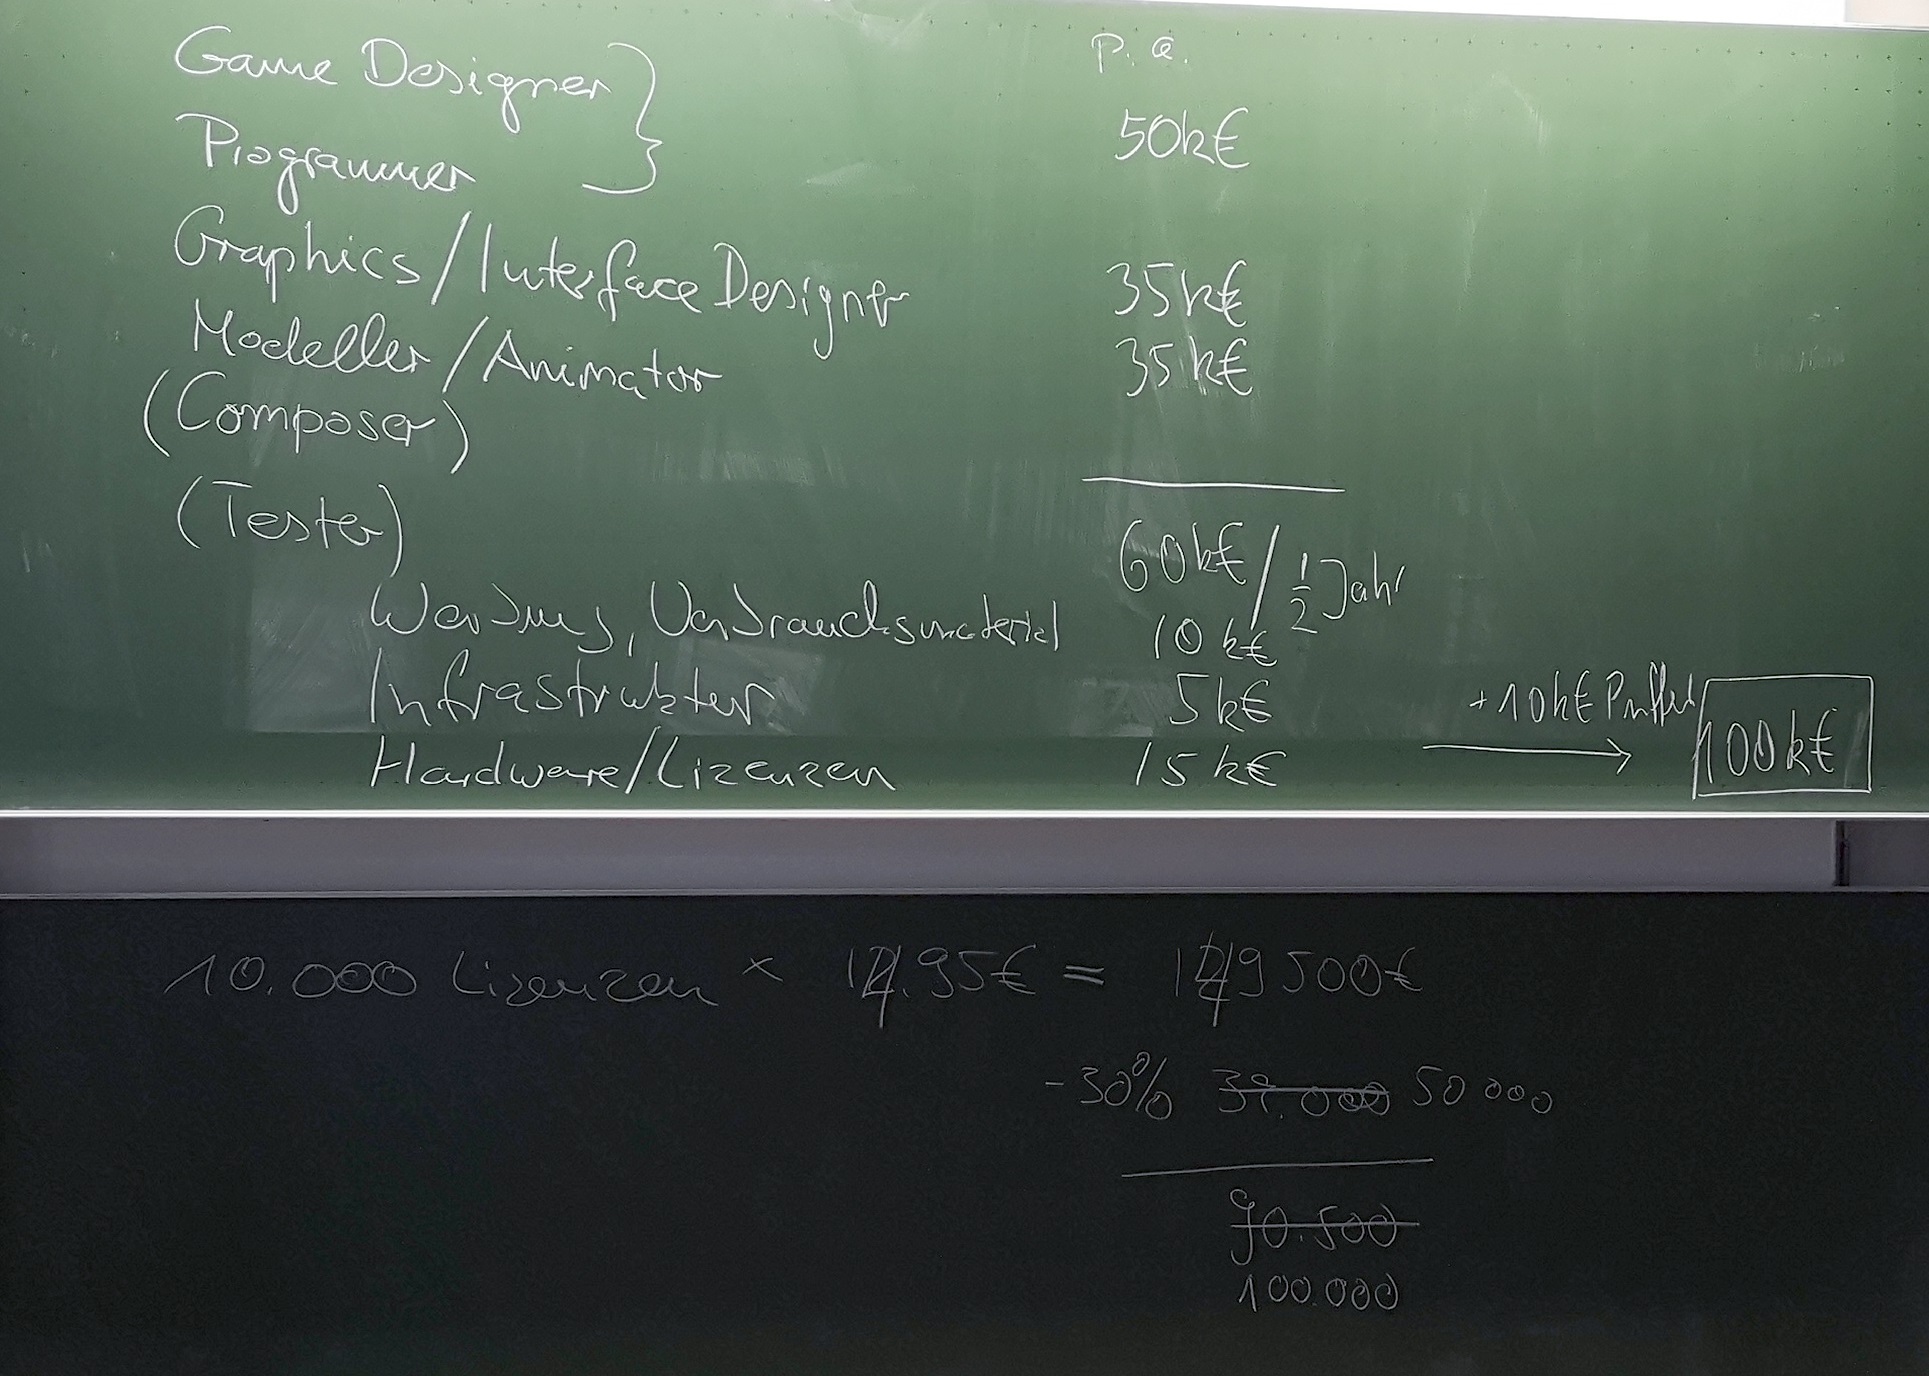 p. a.
Game Designer }
Programmer } 50k€
Graphics/Interface Designer 35k€
Modeller/Animator 35k€
(Composer)
(Tester)
60k€/½ Jahr
Werbung, Verbrauchsmaterial 10k€
Infrastruktur 5k€
Hardware/Lizenzen 15k€
+10k€ Puffer
→ 100k€
10.000 Lizenzen × 14.95€ = 149500€
-30% 39.000 50 000
90.500
100.000